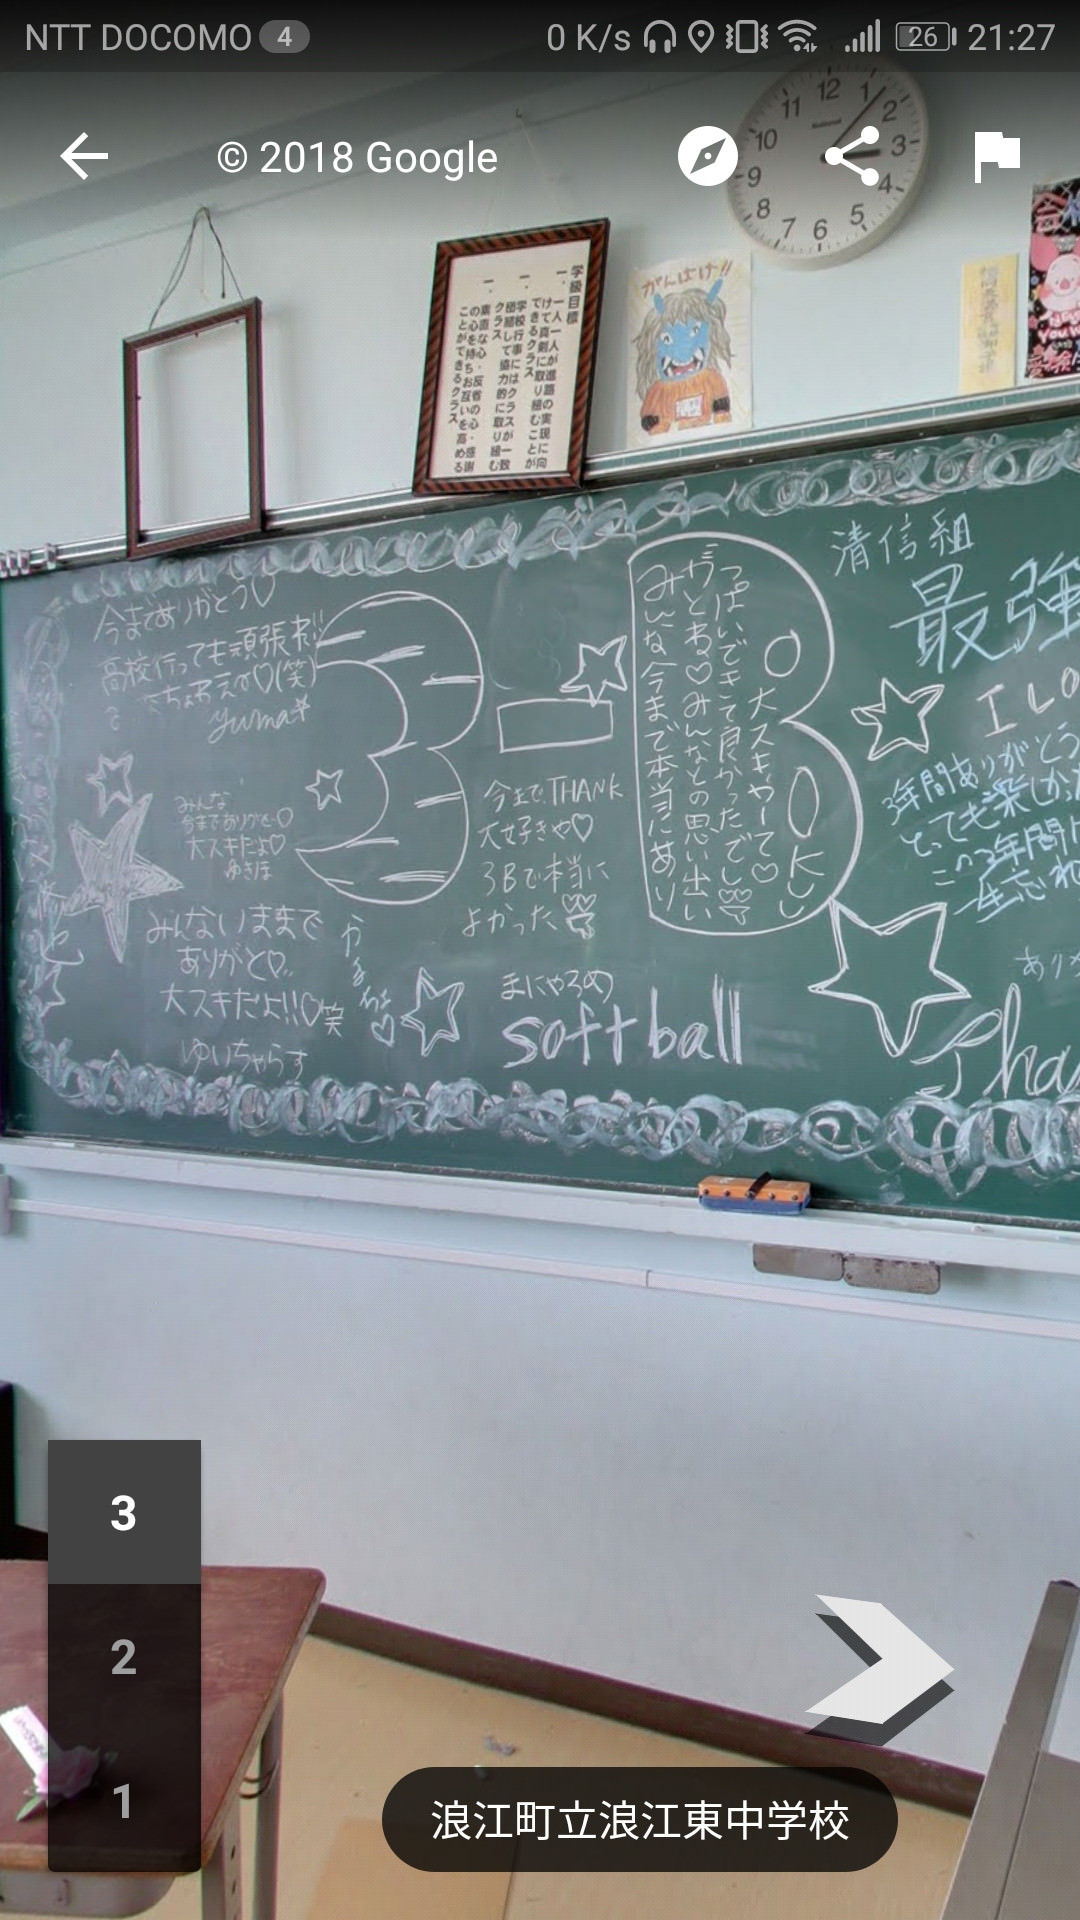 NTT DOCOMO 4 0 K/s 26 21:27
© 2018 Google
11 12 1 2 3 4 5 6 7 8 9 10
学級目標
一、一人一人が進路の実現に向
けて真剣に取り組むことが
できるクラス
一、学校行事にはクラスが一致
団結して協力的に取り組む
クラス
一、素直な心・反省の心・感謝
の心を持ちお互いを高める
ことができるクラス
がんばけ!!
清信組
最強
I LO
今までありがとう♡
高校行っても頑張れ!!
yuma
3-B
みんな今まで本当にあり
がとね♡みんなとの思い出い
っぱいできて良かったでし
大スキやーて♡
みんな
今までありがと♡
大スキだよ♡
ゆきほ
今まで THANK
大好きや♡
3Bで本当に
よかった
みんないままで
ありがと♡
大スキだよ!!♡笑
ゆいちゃらす
まにゃろめ
softball
3年間ありがとう
とっても楽しか
この3年間
一生忘れ
あり
Tha
3
2
1
浪江町立浪江東中学校